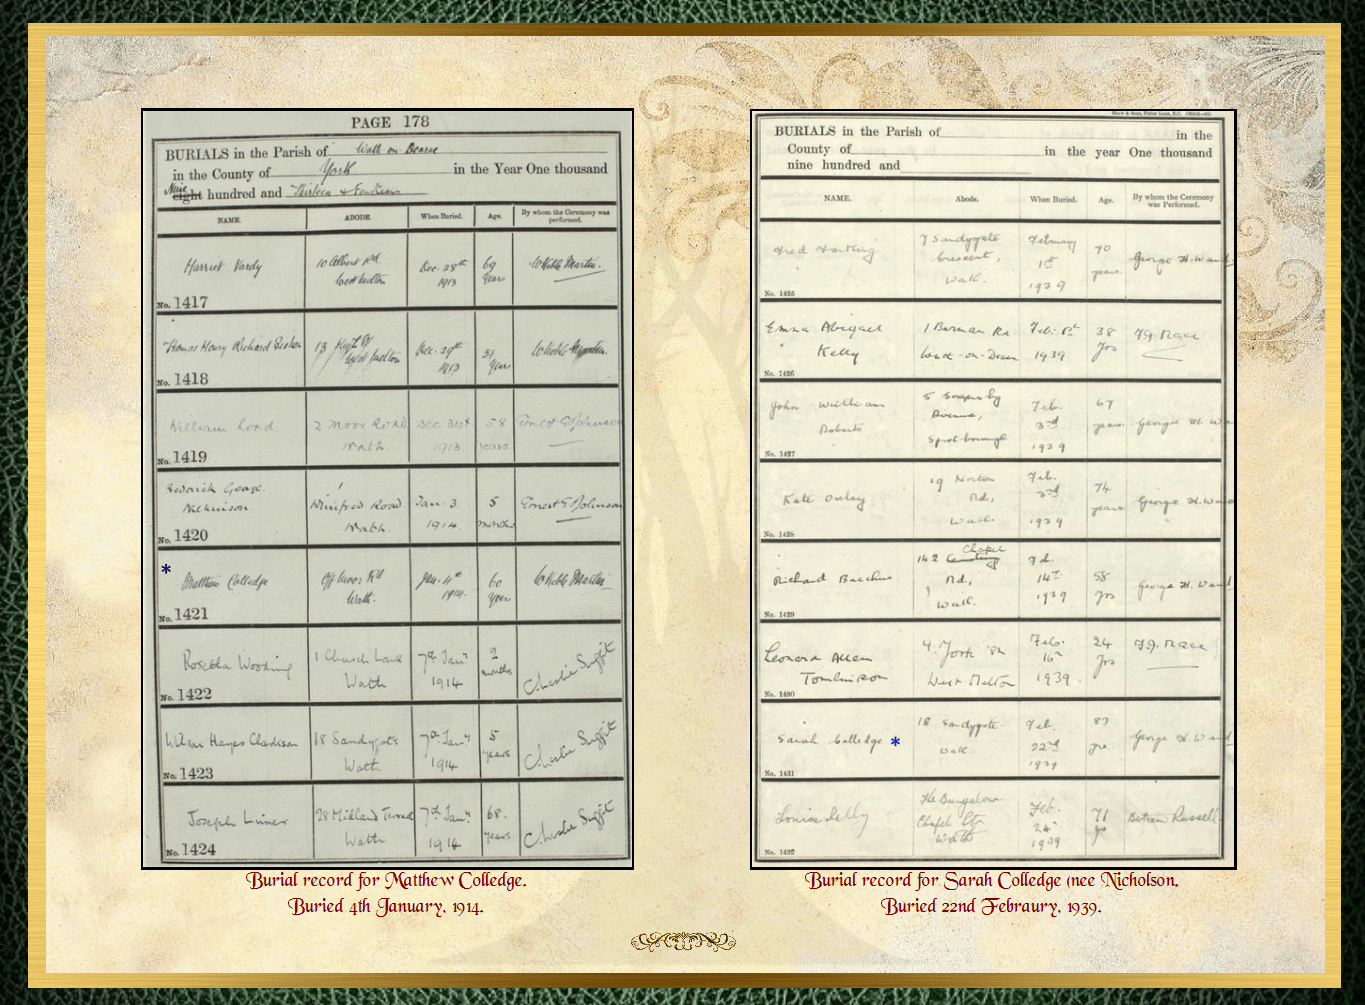 PAGE 178
BURIALS in the Parish of Wath-on-Dearne
in the County of York in the Year One thousand
Nine
eight hundred and Thirteen & Fourteen
NAME. ABODE. When Buried. Age. By whom the Ceremony was performed.
Harriet Vardy 10 Albert Rd Dec. 28th 69
West Melton 1913 years
No. 1417
Thomas Henry Richard 13 Dec. 29th
West Melton 1913 years
No. 1418
William 2 Moor Road Dec 31st 58 Ernest Johnson
Wath. 1913. years.
No. 1419
George Winifred Road Jan. 3 5 Ernest Johnson
Wath. 1914 months
No. 1420
* Matthew Colledge Off Moor Rd Jan. 4th 60 Martin
Wath. 1914. year
No. 1421
Rosetta Wooding 1 Church Lane 7th Jany 9 Charlie Suggit
Wath 1914 months
No. 1422
Hayes Clarkson 18 Sandygate 7th Jany 5 Charlie Suggit
Wath 1914 years
No. 1423
Joseph 28 Midland Terrace 7th Jany 68. Charlie Suggit
Wath 1914 years
No. 1424
BURIALS in the Parish of in the
County of in the year One thousand
nine hundred and
NAME. Abode. When Buried. Age. By whom the Ceremony was Performed.
Fred 7 Sandygate February 70 George H. Ward
Crescent, 1st years
Wath. 1939
No. 1425
Emma Abigail 1 Burman Rd Feb: 1st 38 F.G. Race
Kelly Wath-on-Dearne 1939 yrs
No. 1426
John William 5 Feb. 67 George H. Wa
Roberts Avenue, 3rd years
Sprotborough 1939
No. 1427
Kate Oxley 19 Norton Feb. 74 George H. Ward
Rd., 3rd years
Wath. 1939
No. 1428
Chapel
Richard Bacchus 142 Cemetery Feb. 58 George H. Ward
Rd, 14th yrs
Wath. 1939
No. 1429
Leonard Allen 4. York St Feb. 24 F.G. Race
Tomlinson West Melton 16th yrs
1939.
No. 1430
Sarah Colledge * 18 Sandygate Feb. 83 George H. Ward
Wath. 22nd yrs.
1939
No. 1431
Louisa The Bungalow Feb. 71 Bertram Russell
Chapel St. 24th yrs
Wath 1939
No. 1432
Burial record for Matthew Colledge.
Buried 4th January, 1914.
Burial record for Sarah Colledge (nee Nicholson.
Buried 22nd Febraury, 1939.